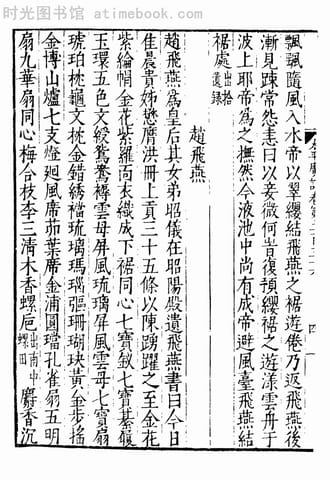 时光图书馆 atimebook.com
四
飄颻隨風入水帝以翠纓結飛燕之裾遊倦乃返飛燕後
漸見踈常怨恚曰以妾微何旹復預纓裾之遊漾雲舟于
波上耶帝爲之憮然今液池中尚有成帝避風臺飛燕結
裾處出拾遺録
趙飛燕
趙飛燕爲皇后其女弟昭儀在昭陽殿遺飛燕書曰今日
佳晨貴姊懋膺洪冊上貢三十五條以陳踴躍之至金花
紫綸帽金花紫羅面衣織成下裾同心七寶釵七寶綦履
玉環五色文綬鴛鴦褥雲母屏風琉璃屏風雲母七寶扇
琥珀枕龜文枕金錯綉襠琉璃瑪瑙彄珊瑚玦黃金步搖
金博山爐七支燈廻風席茆葉席金浦圓璫孔雀扇五明
扇九華扇同心梅合枝李三清木香螺巵出南中螺田麝香沉